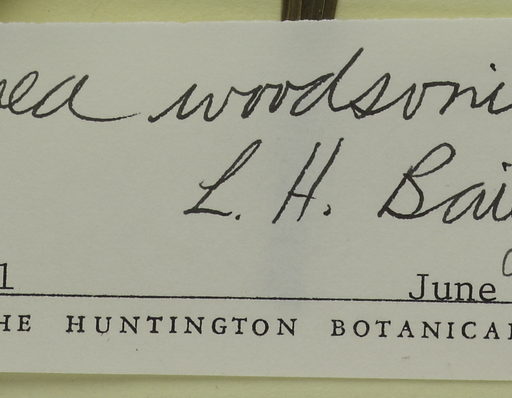 ea woodsoni
L. H. Bai
1 June
HE HUNTINGTON BOTANICAL